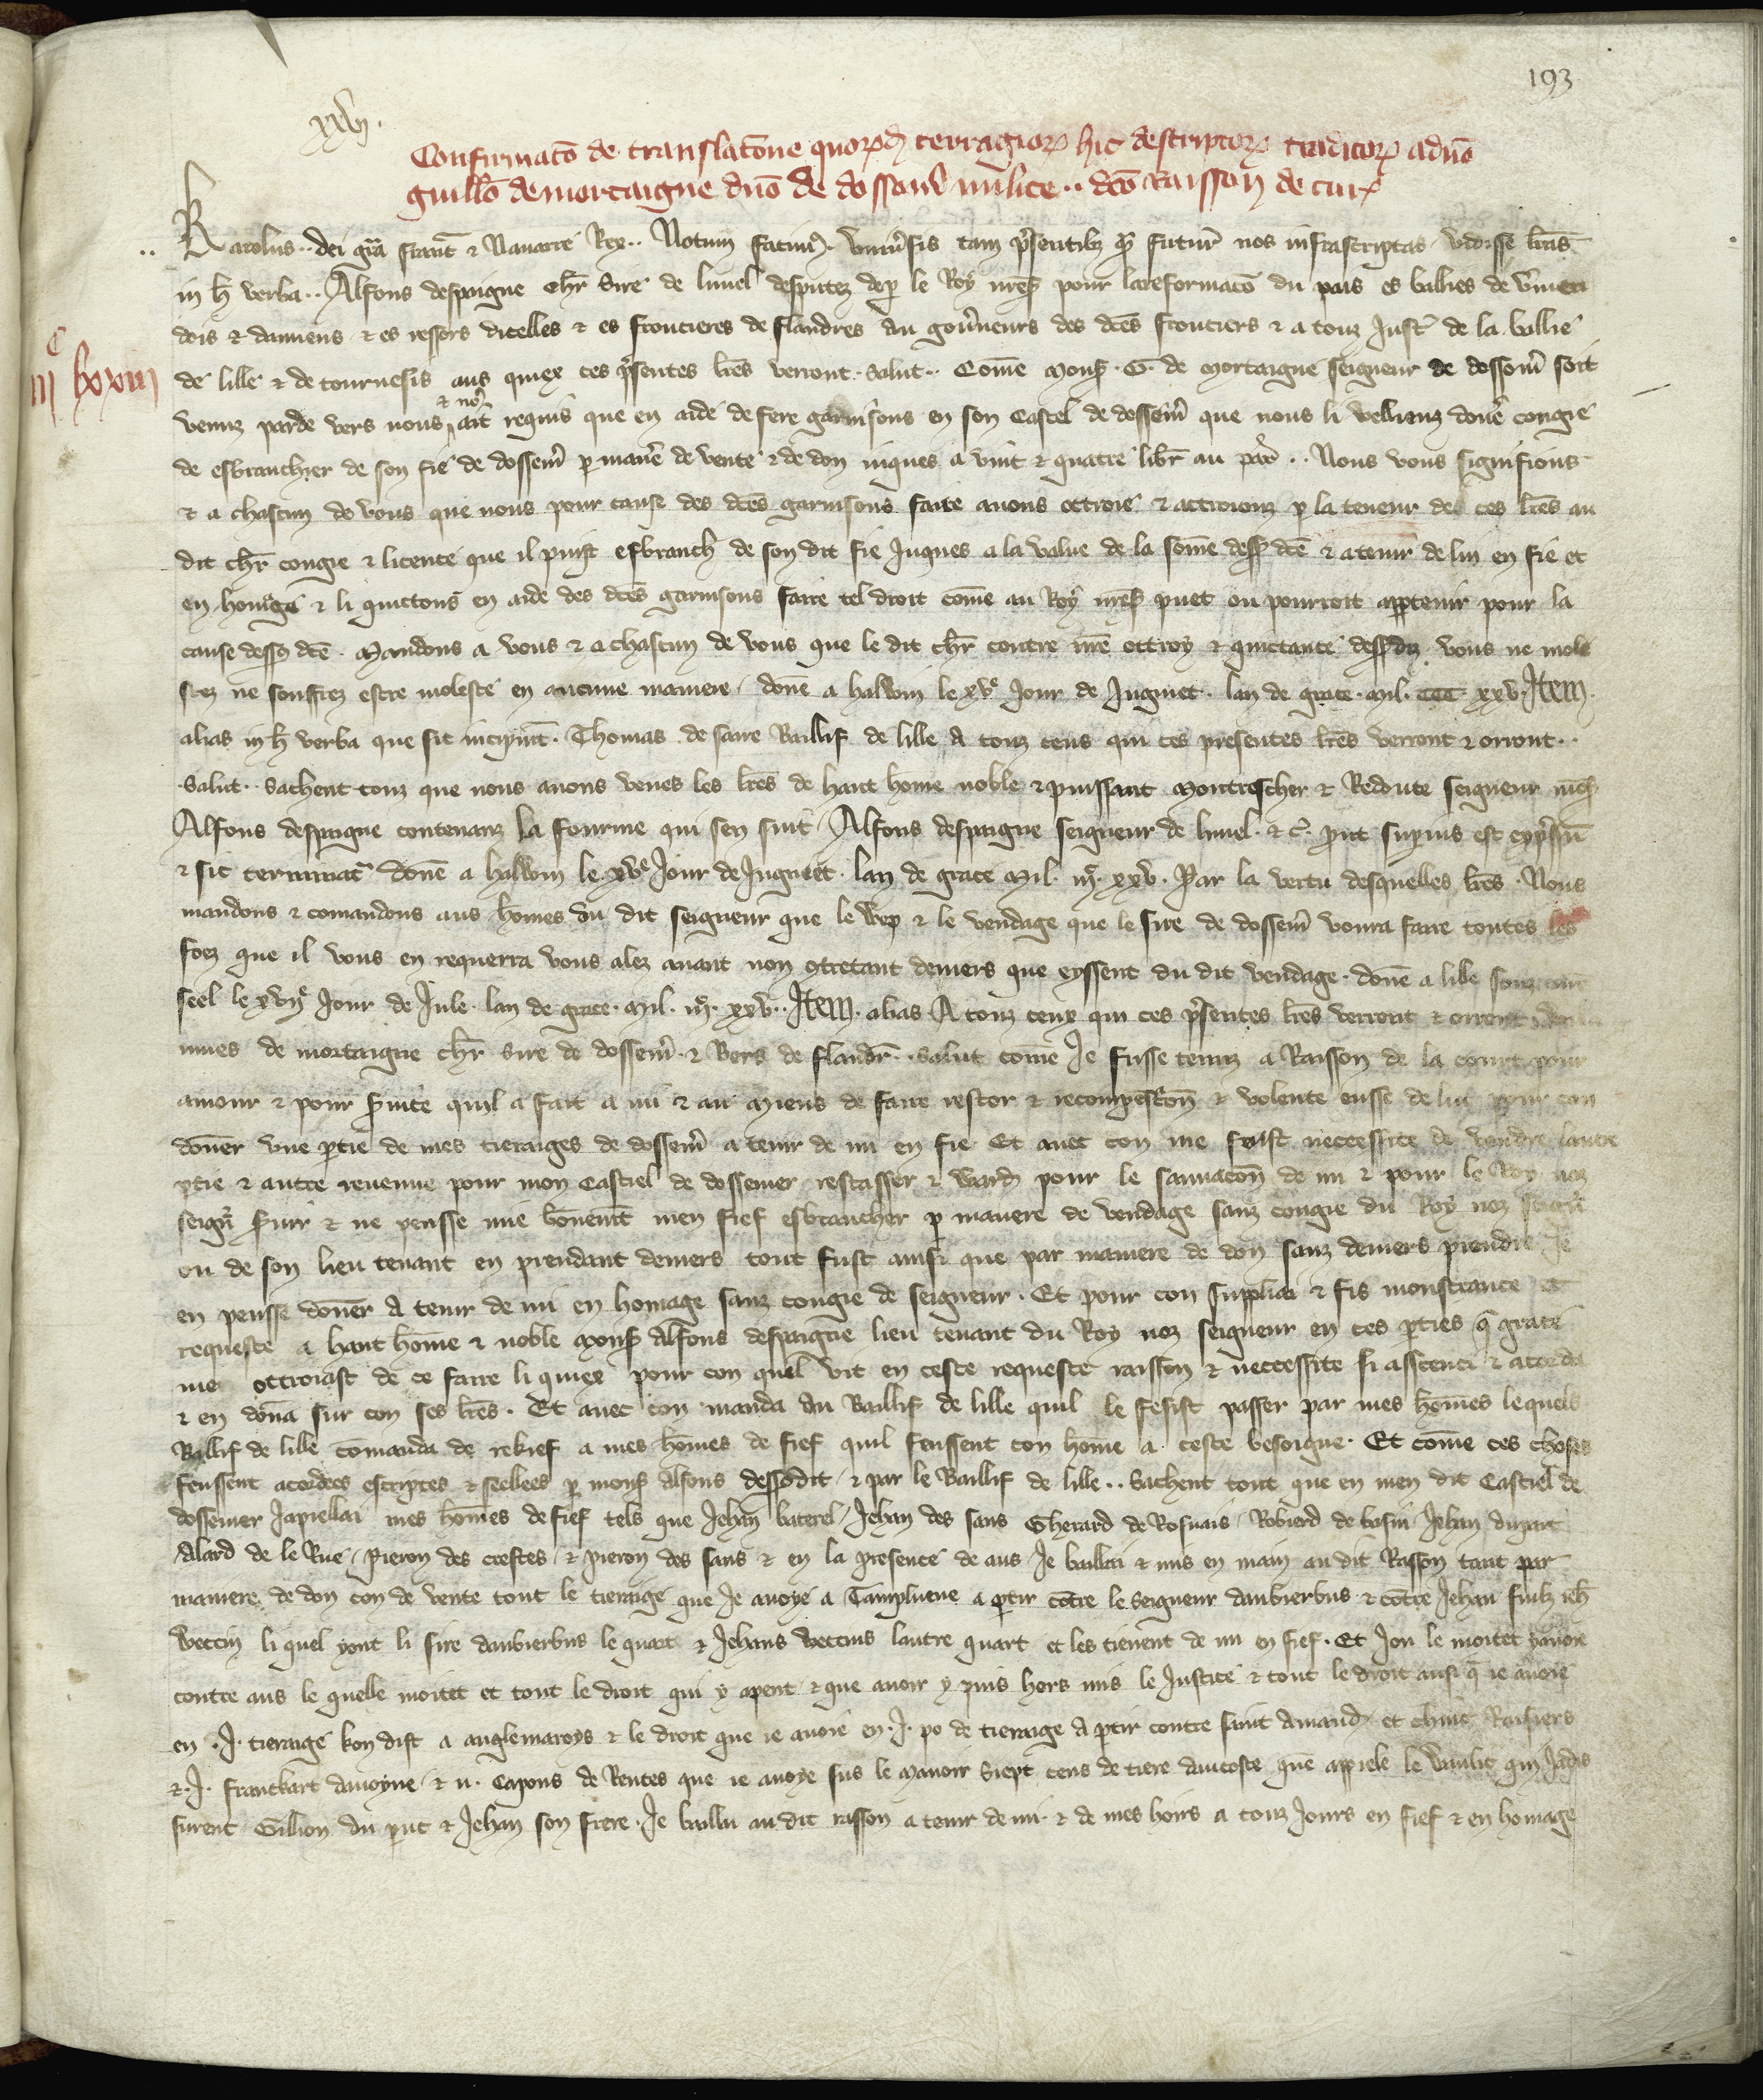 193
xxvij.
Confirmatō de translatōne quorūd terragiorꝝ hic descriptorꝝ traditorꝝ a dnō
guillō de mortaigne dnō de dossemr̄ milite .. dcō Raisson de curꝝ
Karolus .. dei grā franc̄ ⁊ Nauarre Rex .. Notum facimꝰ. vniuersis tam p̄sentibꝫ q̄ futur̄ nos infrascriptas vidisse lr̄as
in h̄ verba .. Alfons despaigne chr̄ Sire de lunel deputez de p̱ le Roy nr̄es̄ pour la reformacō du pais es ballies de v̄men
dois ⁊ damiens ⁊ es ressors dicelles ⁊ es frontieres de flandres au gou̅neurs des dc̄es frontiers ⁊ a touz Just̄ de la ballie
iijᶜ lxxiiij
de lille ⁊ de tournesis aus quiex ces p̄sentes lr̄es verront. Salut .. Cōme Mons̄ .G. de Mortaigne seigneur de dossemr̄ soit
venuz par de vers nous ⁊ noꝰ ait requis que en aide de fere garnisons en son Castel de dossemr̄ que nous li vellienz donēr congie
de esbranchier de son fie de dossemr̄ p̱ manēre de vente ⁊ de don iuques a vint ⁊ quatre libr̄ au par̄ .. Nous vous signifions
⁊ a chascun de vous que nous pour cause des dc̄es garnisons faire auons ottroie ⁊ attroionz p̱ la teneur de ces lr̄es au
dit chr̄ congie ⁊ licence que il puist esbranch̄ de son dit fie Juques a la value de la sōme dess̄ dcē ⁊ a tenir de lui en fie et
en homāge ⁊ li quictons en aide des dc̄es garnisons faire tel droit cōme au Roy nr̄es̄ puet ou pourroit appartenir pour la
cause desso dcē. Mandons a vous ⁊ a chascun de vous que le dit chr̄ contre nr̄e ottroy ⁊ quictance dess̄ dz vous ne mole
stez ne souffrez estre moleste en aucune maniere. donē a halwin le xvᵉ Jour de Jugniet. lan de grace. Mil. CCC xxv. Item
alias in h̄ verba que sic incipiūt. Thomas de saire Baillif de lille A touz ceus qui ces presentes lr̄es verront ⁊ orront ..
Salut .. Sachent touz que nous auons veues les lr̄es de haut home noble ⁊ puissant Montrescher ⁊ Redoute seigneur mōs̄
Alfons despaigne contenanz la fourme qui sen suit / Alfons despaigne seigneur de lunel. ⁊ c̄. prout suꝑius est exp̄ssū
⁊ sic terminat̄ donē a halwin le xvᵉ Jour de Jugniet. lan de grace Mil. iijᶜ xxv. Par la vertu desquelles lr̄es. Nous
mandons ⁊ comandons aus hōmes du dit seigneur que le werp ⁊ le vendage que le sire de dossemr̄ voura faire toutes les
foez que il vous en requerra vous alez auant non ꝯtretant deniers que eyssent du dit vendage. donē a lille souz nr̄e
seel le xvijᵉ Jour de Jule. lan de grace. Mil. iijᶜ xxv .. Item. alias A touz ceux qui ces p̄sentes lr̄es verront ⁊ orrent
mes de mortaigne chr̄ Sire de dossemr̄. ⁊ Bers de flandr̄. Salut cōme Je fusse tenuz a Raisson de la court pour
amour ⁊ pour s̄uice quil a fait a mi ⁊ au Miens de faire restor ⁊ recompēscon ⁊ volente eusse de lui pour con
donēr vne p̱tie de mes tieraiges de dossemr̄ a tenir de mi en fie Et auec con me feust neccessite de vendre lautre
p̱tie ⁊ autre reuenue pour mon Castiel de dossemer restasser ⁊ ward̄ pour le sauuacōn de mi ⁊ pour le Roy noz
seign̄r s̄uir ⁊ ne peusse mie bōnemēt men fief esbrancher p̱ manere de vendage sanz congie du Roy noz seignr̄
ou de son lieu tenant en prendant deniers tout fust ainsi que par maniere de don sanz deniers prendre Je
en peusse donēr A tenir de mi en homage sanz congie de seigneur. Et pour con suppliai ⁊ fis monstrance ⁊
requeste a haut hōme ⁊ noble Mons̄ Alfons despaigne lieu tenant du Roy noz seigneur en ces p̱ties q̄ grace
me ottroiast de ce faire li quiex pour con quel vit en ceste requeste raisson ⁊ neccessite si assenti ⁊ acorda
⁊ en donā sur con ses lr̄es. Et auec con manda au Baillif de lille quil le fesist passer par mes hōmes lequels
Ballif de lille cōmanda de rekief a mes hōmes de fief quil feussent con hōme a ceste besoigne. Et cōme ces choses
feussent acordees escriptes ⁊ seellees p̱ mons̄ Alfons dess̄dit ⁊ par le Baillif de lille .. Sachent tout que en men dit Castiel de
dossemer Japiellai mes hōmes de fief tels que Jehan baterel / Jehan des sans Gherard de Rosnais / Robierd de bosin Jehan dupret
Alard de le Rue / Pieron des crestes ⁊ pieron des sans ⁊ en la presence de aus Je baillai ⁊ mis en main au dit Rasson tant par
maniere de don con de vente tout le tieraige que Je auoye a Tampluene a p̱tir cōtre le seigneur daubierbus ⁊ cōtre Jehan filz Jeh̄
Weccin li quel yont li sire daubierbus le quart ⁊ Jehans Weccins lautre quart et les tienent de mi en fief. Et Jou le moitet yauoie
contre aus le quelle moitet et tout le droit qui y apent ⁊ que auoir y puis hors mis le Justice ⁊ tout le droit ausi q̄ ie auoie
en .J. tieraige kon dist a anglemaroys ⁊ le droit que ie auoie en .J. po de tieraige a p̱tir contre saint Amand et chuic Rasiers
⁊ .J. franckart dauoyne ⁊ ii. Capons de Rentes que ie auoye sus le Manoir siept cens de tiere daucoste quē appiele le qui Jadis
furent Gillion du put ⁊ Jehan son frere. Je baillai au dit rasson a tenir de mi. ⁊ de mes hoirs a touz Jours en fief ⁊ en homage